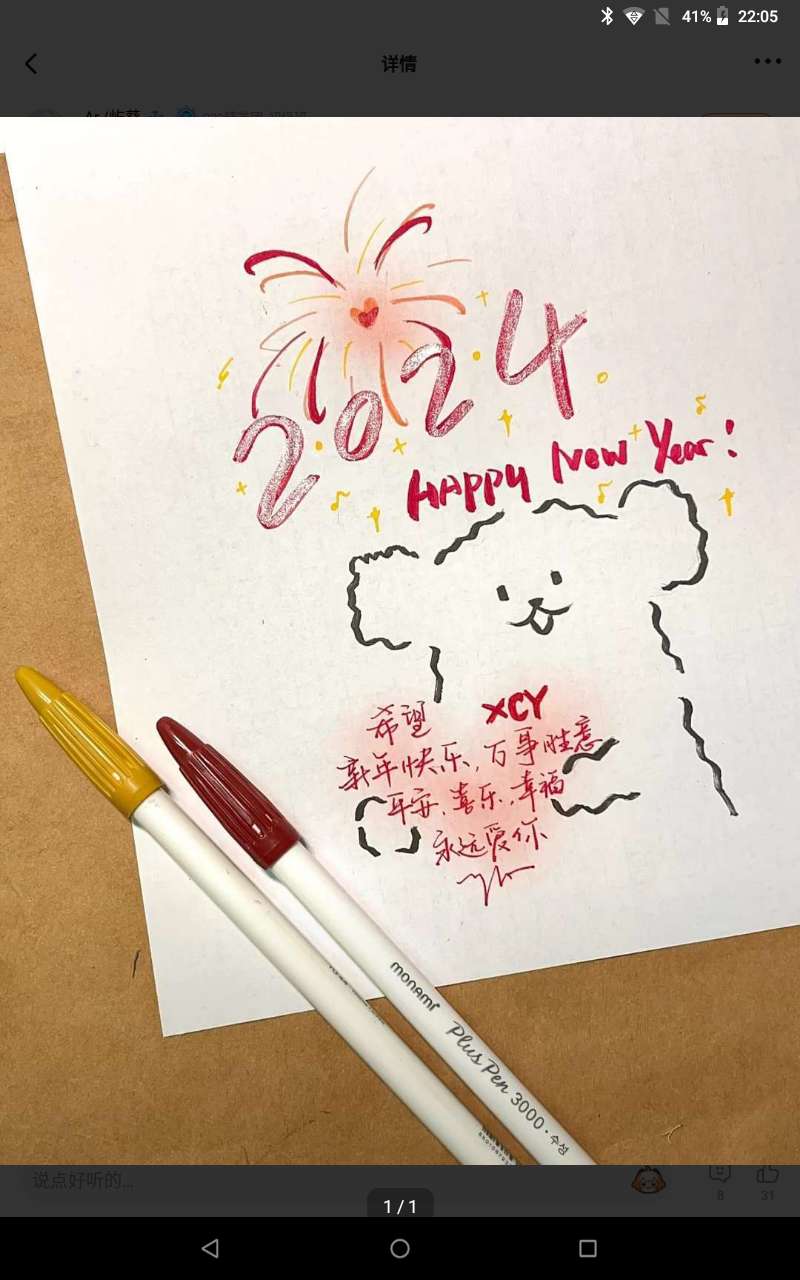 41% 22:05
详情
2024
HAPPY New Year!
希望 XCY
新年快乐，万事胜意
平安，喜乐，幸福
永远爱你
monami Plus Pen 3000 · 수성
说点好听的...
8 31
1 / 1